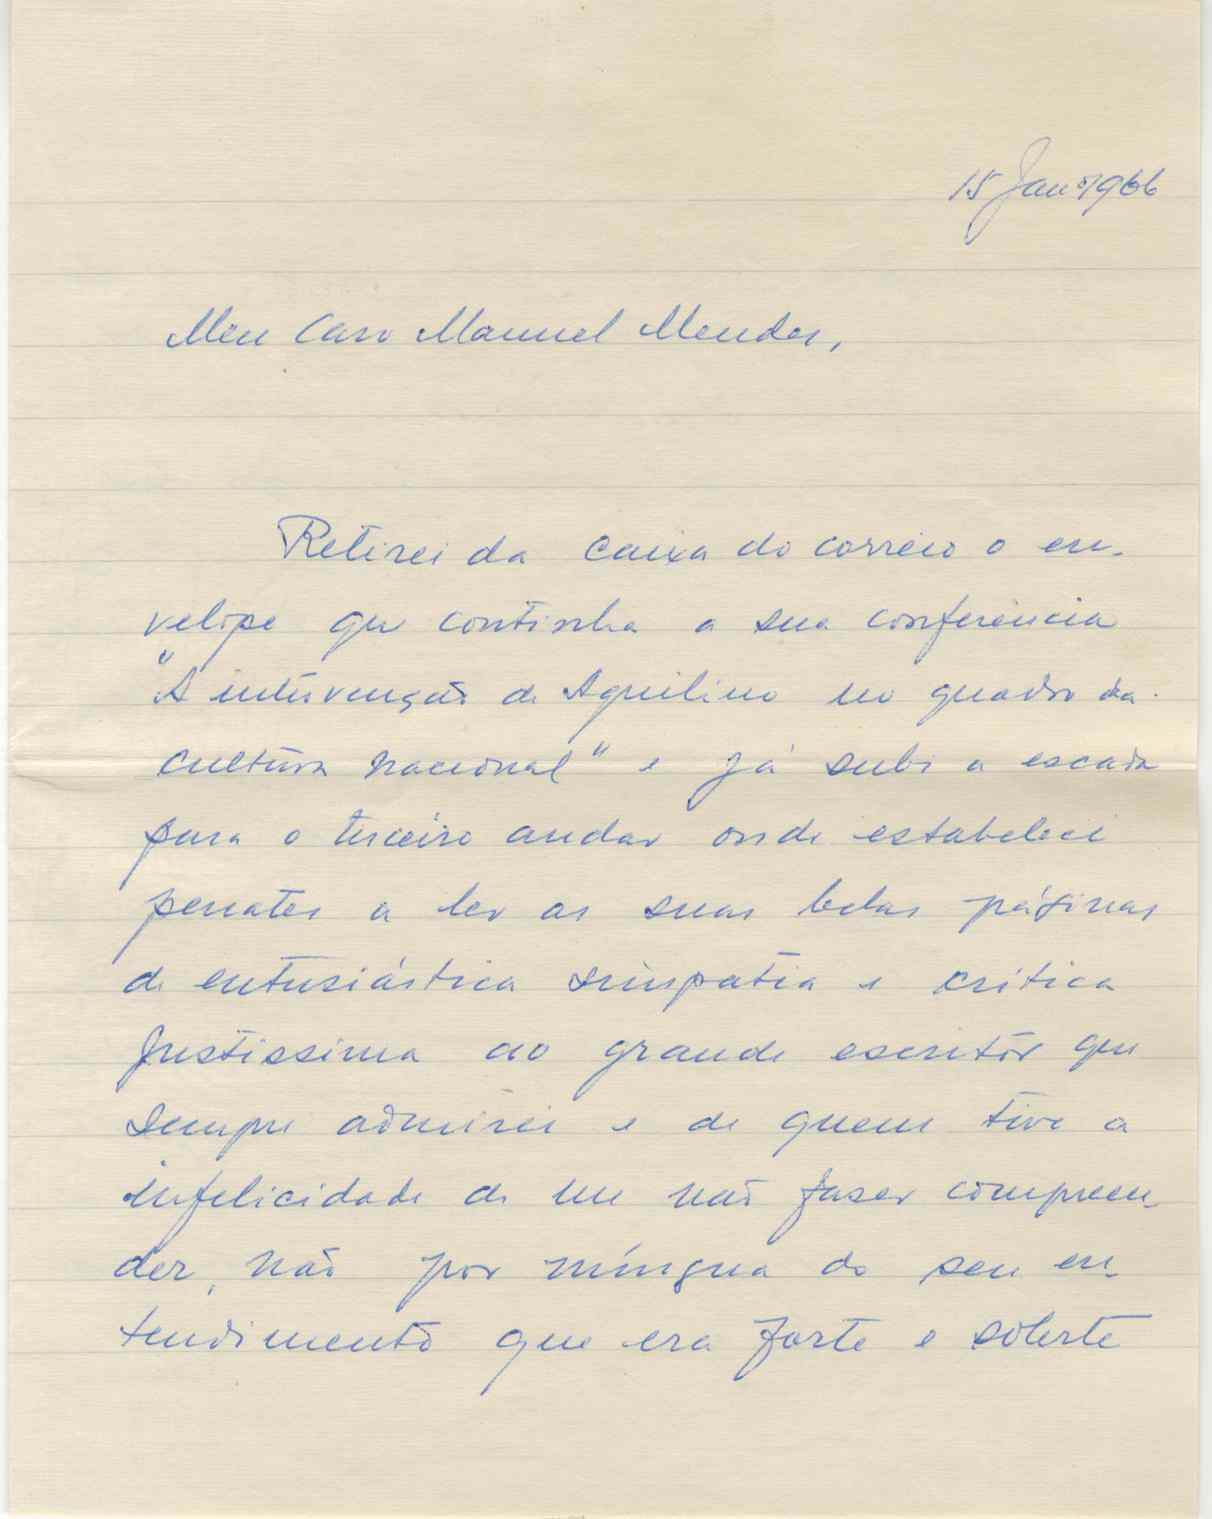 15 Janº 1966
Meu Caro Manuel Mendes,
Retirei da caixa do correio o en-
velope que continha a sua conferência
"A intervenção de Aquilino no quadro da
cultura nacional" e já subi a escada
para o terceiro andar onde estabeleci
penates a ler as suas belas páginas
de entusiástica simpatia e crítica
justissima ao grande escritor que
sempre admirei e de quem tive a
infelicidade de me não fazer compreen-
der, não por míngua do seu en-
tendimento que era forte e solerte